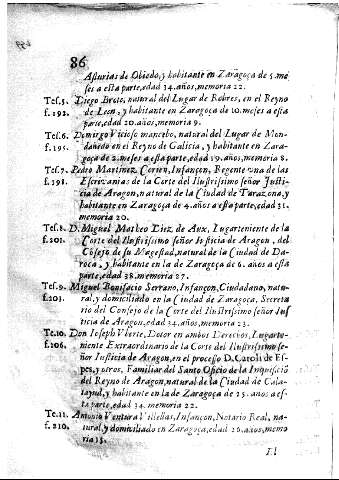 86
Asturias de Obiedo, y habitante en Zaragoça de 5. me-
ses a esta parte, edad 34. años, memoria 22.
Tes. 5. Diego Brete, natural del Lugar de Robres, en el Reyno
f. 192. de Leon, y habitante en Zaragoça de 10. meses a esta
parte, edad 20. años, memoria 9.
Tes. 6. Domingo Vicioso mancebo, natural del Lugar de Mon-
f. 195. dañedo en el Reyno de Galicia, y habitante en Zara-
goça de 2. meses a esta parte, edad 19. años, memoria 8.
Tes. 7. Pedro Martinez Corien, Infançon, Regente una de las
f. 198. Escrivanias de la Corte del Ilustrissimo señor Justi-
cia de Aragon, natural de la Ciudad de Tarazona, y
habitante en Zaragoça de 4. años a esta parte, edad 31.
memoria 20.
Tes. 8. D. Miguel Mateo Diez de Aux, Lugarteniente de la
f. 201. Corte del Ilustrissimo señor Justicia de Aragon, del
Cõsejo de su Magestad, natural de la Ciudad de Da-
roca, y habitante en la de Zaragoça de 6. años a esta
parte, edad 38. memoria 27.
Tes. 9. Miguel Bonifacio Serrano, Infançon, Ciudadano, natu-
f. 203. ral, y domiciliado en la Ciudad de Zaragoça, Secreta
rio del Consejo de la Corte del Ilustrissimo señor Jus
ticia de Aragon, edad 34. años, memoria 23.
Te. 10. Don Ioseph Vberte, Dotor en ambos Derechos, Lugarte-
f. 206. niente Extraordinario de la Corte del Ilustrissimo se
ñor Iusticia de Aragon, en el processo D. Caroli de Es-
pes, y otros, Familiar del Santo Oficio de la Inquisiciõ
del Reyno de Aragon, natural de la Ciudad de Cala-
tayud, y habitante en la de Zaragoça de 15. años a es-
ta parte, edad 34. memoria 22.
Te. 11. Antonio Ventura Villellas, Infançon, Notario Real, na-
f. 210. tural, y domiciliado en Zaragoça, edad 26. años, memo
ria 15.